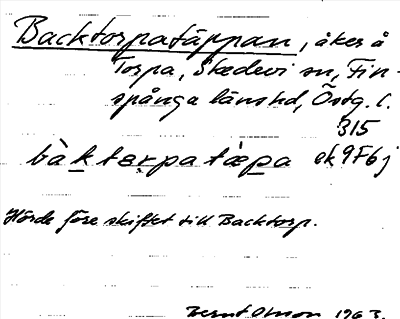 Backtorpatäppan, åker å
Torpa, Skedevi sn, Fin-
spånga länshd, Östg. l.
315
bàktɘrpatæpa ek 9F6j
Hörde före skiftet till Backtorp.
Bernt Olsson 1963.